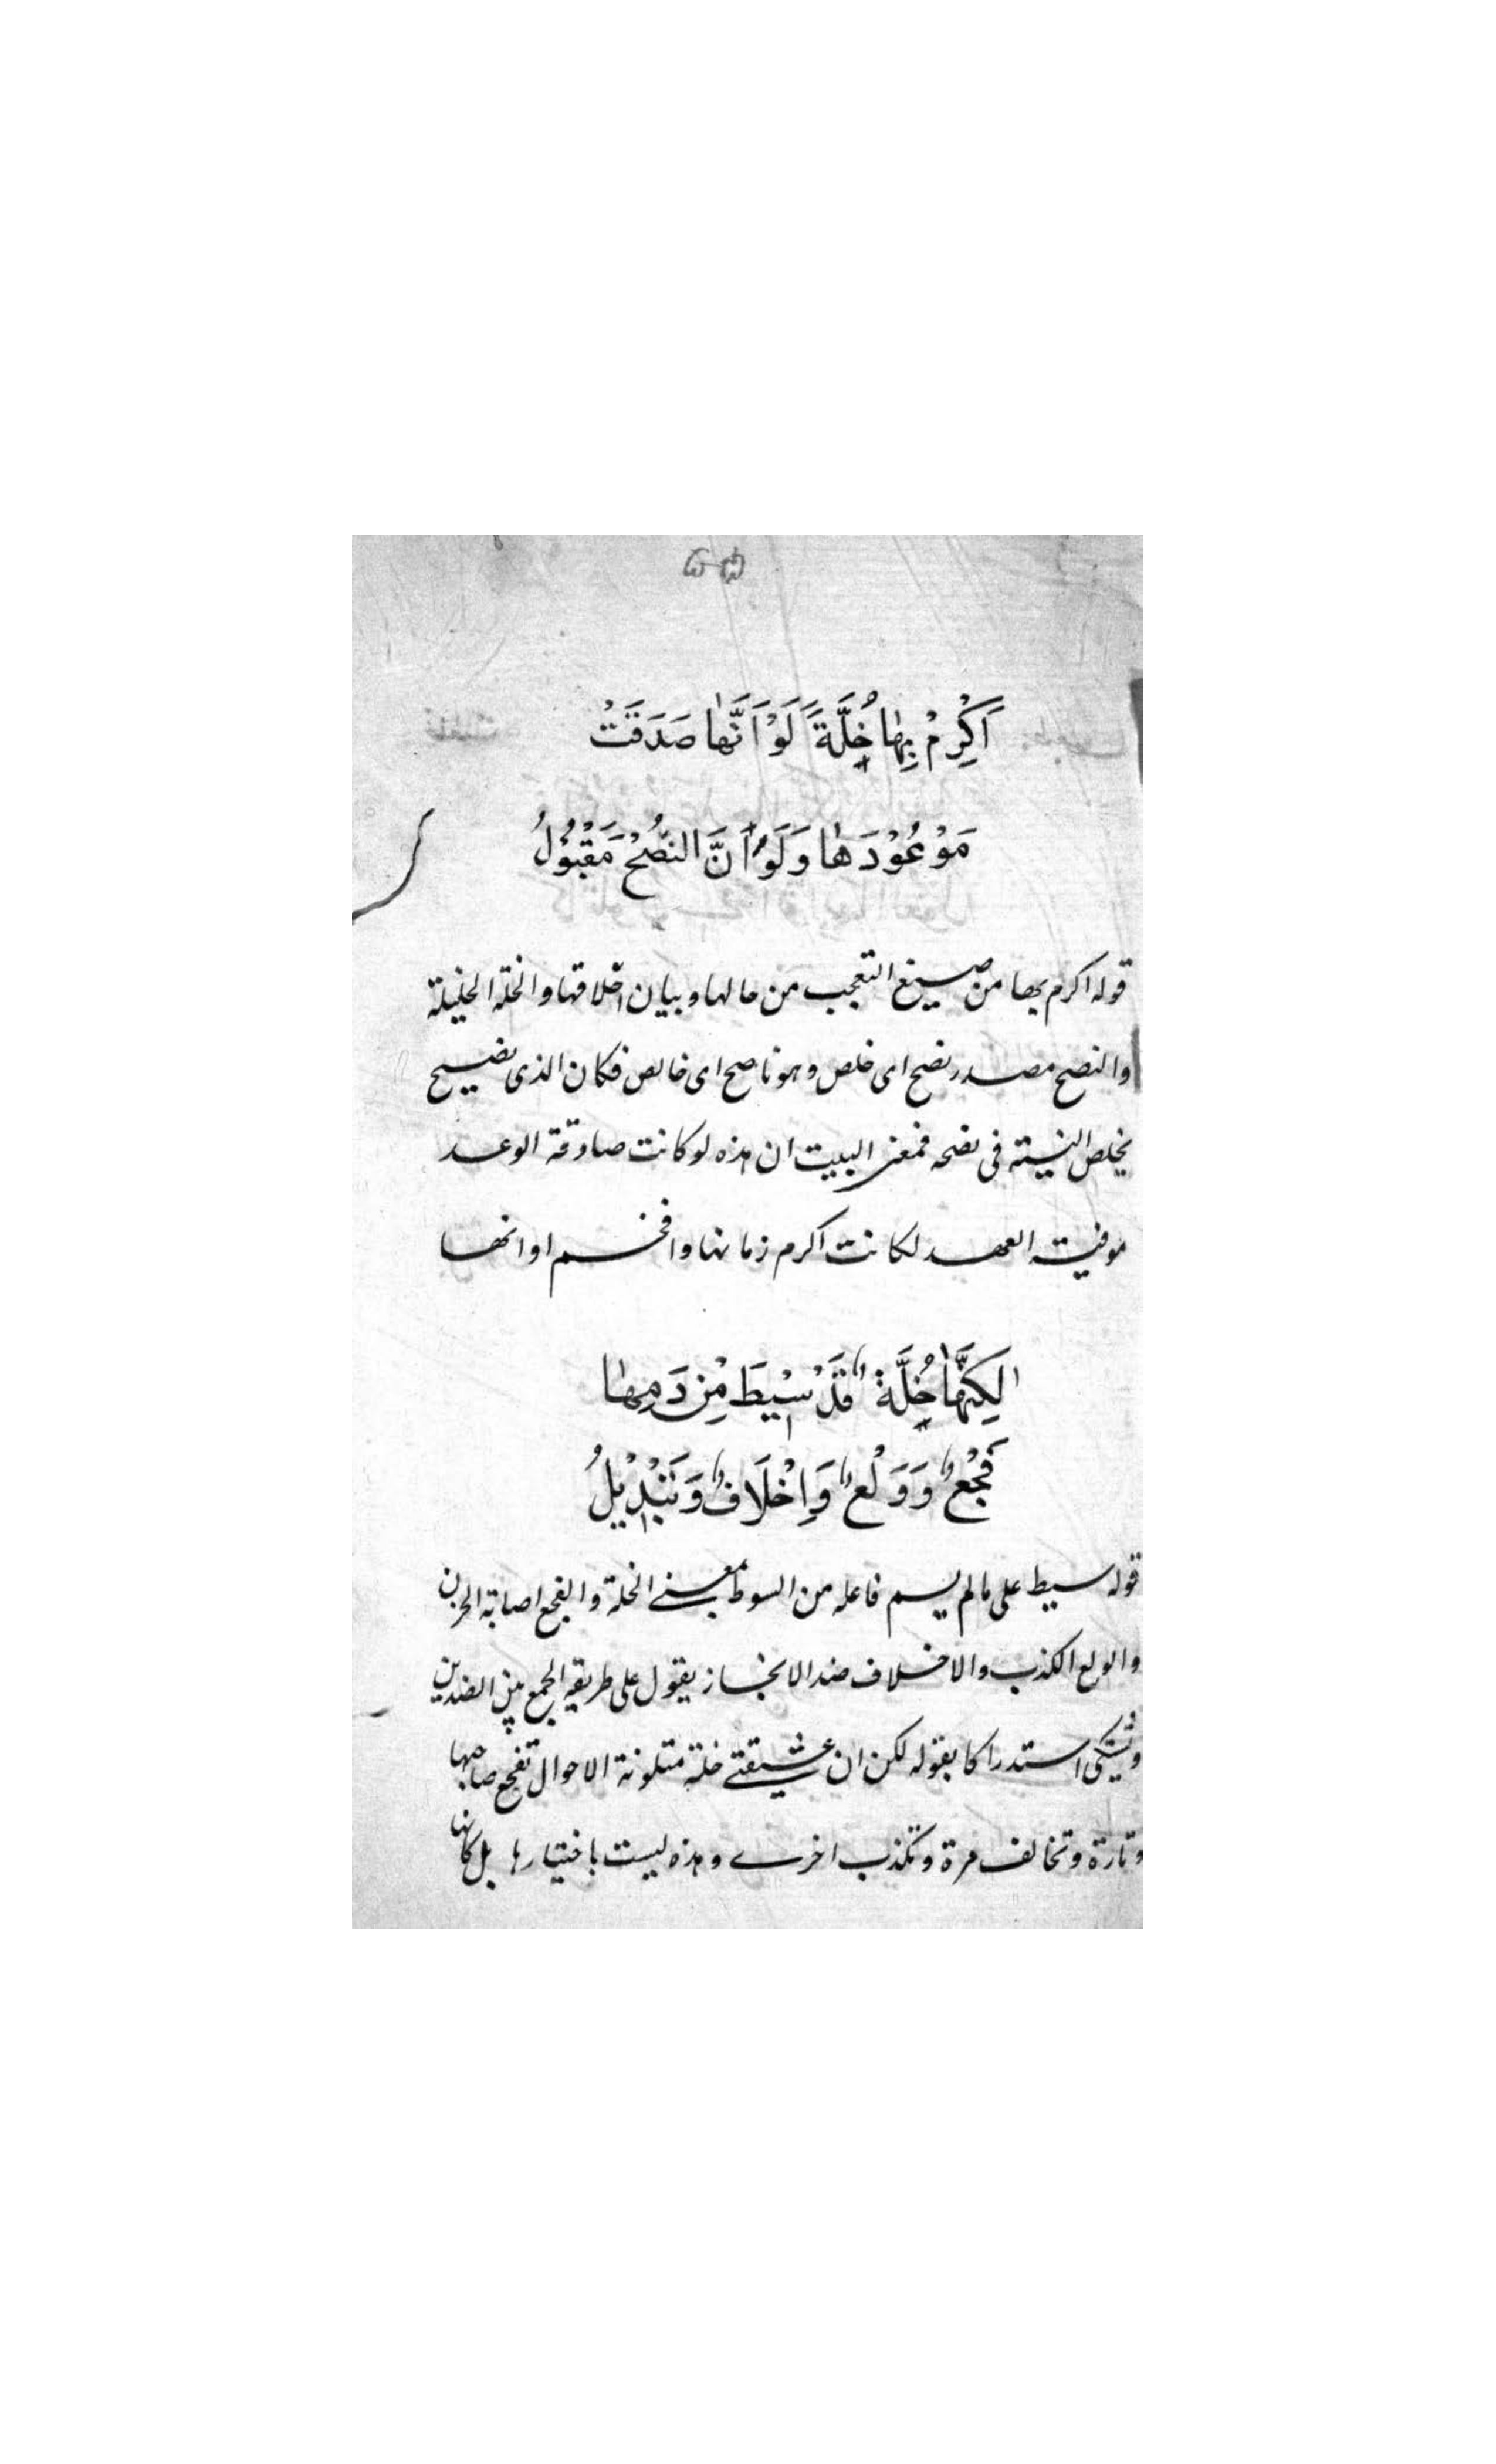 اَكْرِمْ بِهَا خُلَّةً لَوْ اَنَّهَا صَدَقَتْ
مَوْعُوْدَهَا وَلَوْ اَنَّ النُّصْحَ مَقْبُوْلُ
قوله اكرم بها من صيغ التعجب من حالها وبيان اخلاقها والخلة الخليلة
والنصح مصدر نصح اى خلص وهو ناصح اى خالص فكان الذى نصيح
يخلص النية فى نصحه فمعنى البيت ان هذه لو كانت صادقة الوعد
موفية العهد لكانت اكرم زمانها وافخم اوانها
لكِنَّهَا خُلَّةٌ قَدْ سِيْطَ مِنْ دَمِهَا
فَجْعٌ وَوَلْعٌ وَاِخْلَافٌ وَتَبْدِيْلُ
قوله سيط على ما لم يسم فاعله من السوط بمعنى الخلة والفجع اصابة الحزن
والولع الكذب والاخلاف ضد الانجاز يقول على طريقه الجمع بين الضدين
وتشكى استدراكا بقوله لكن ان عشيقتى خلة متلونة الاحوال تفجع صاحبها
وتارة وتخالف مرة وتكذب اخرى وهذه ليست باختيارها بل كانها